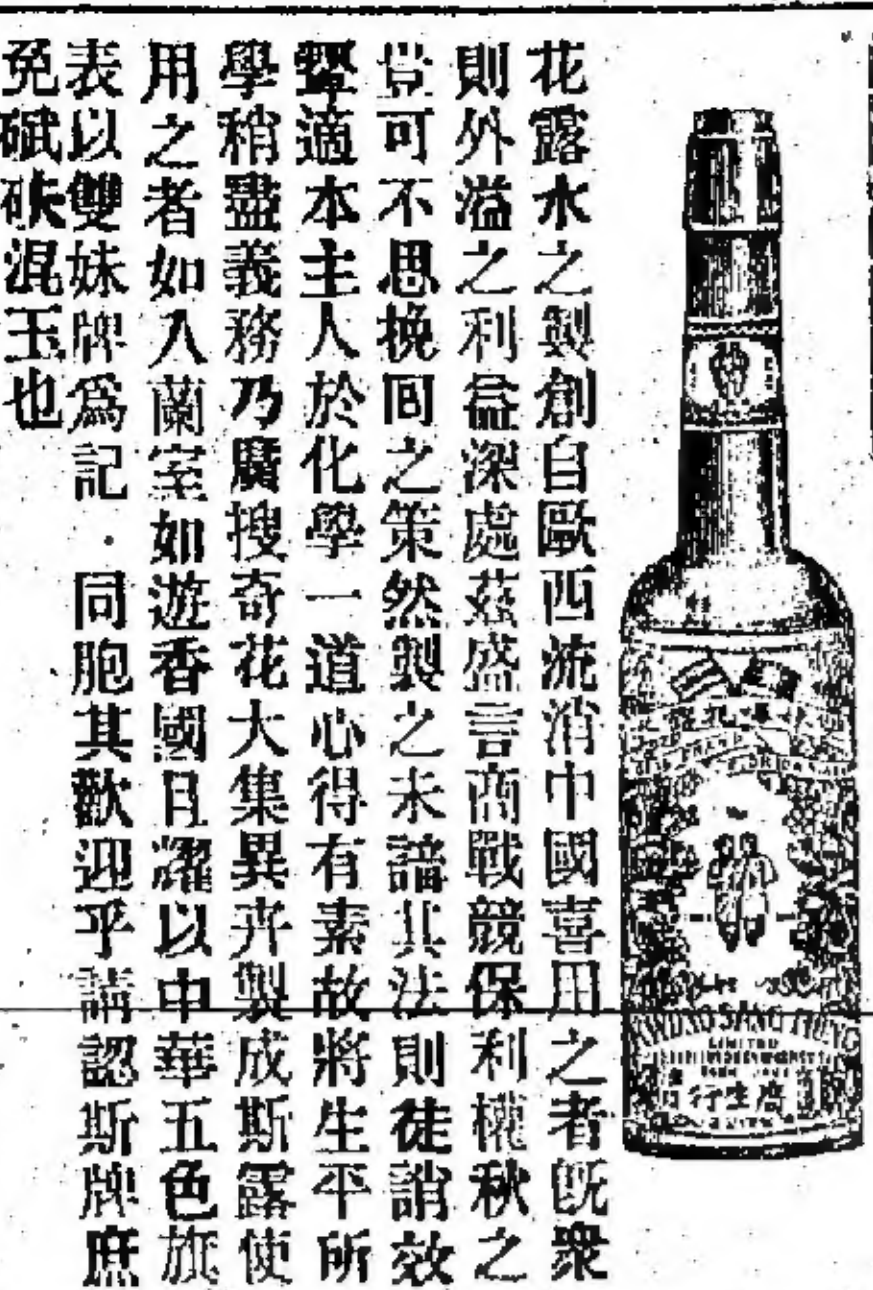 花露水之製創自歐西流消中國喜用之者既衆
則外溢之利益深處茲盛言商戰競保利權秋之
豈可不思挽回之策然製之未諳其法則徒誚效
顰適本主人於化學一道心得有素故將生平所
學稍盡義務乃廣搜奇花大集異卉製成斯露使
用之者如入蘭室如遊香國且耀以中華五色旗
表以雙妹牌爲記．同胞其歡迎乎請認斯牌庶
免碔砆混玉也
KWONG SANG HONG
LIMITED
行生廣